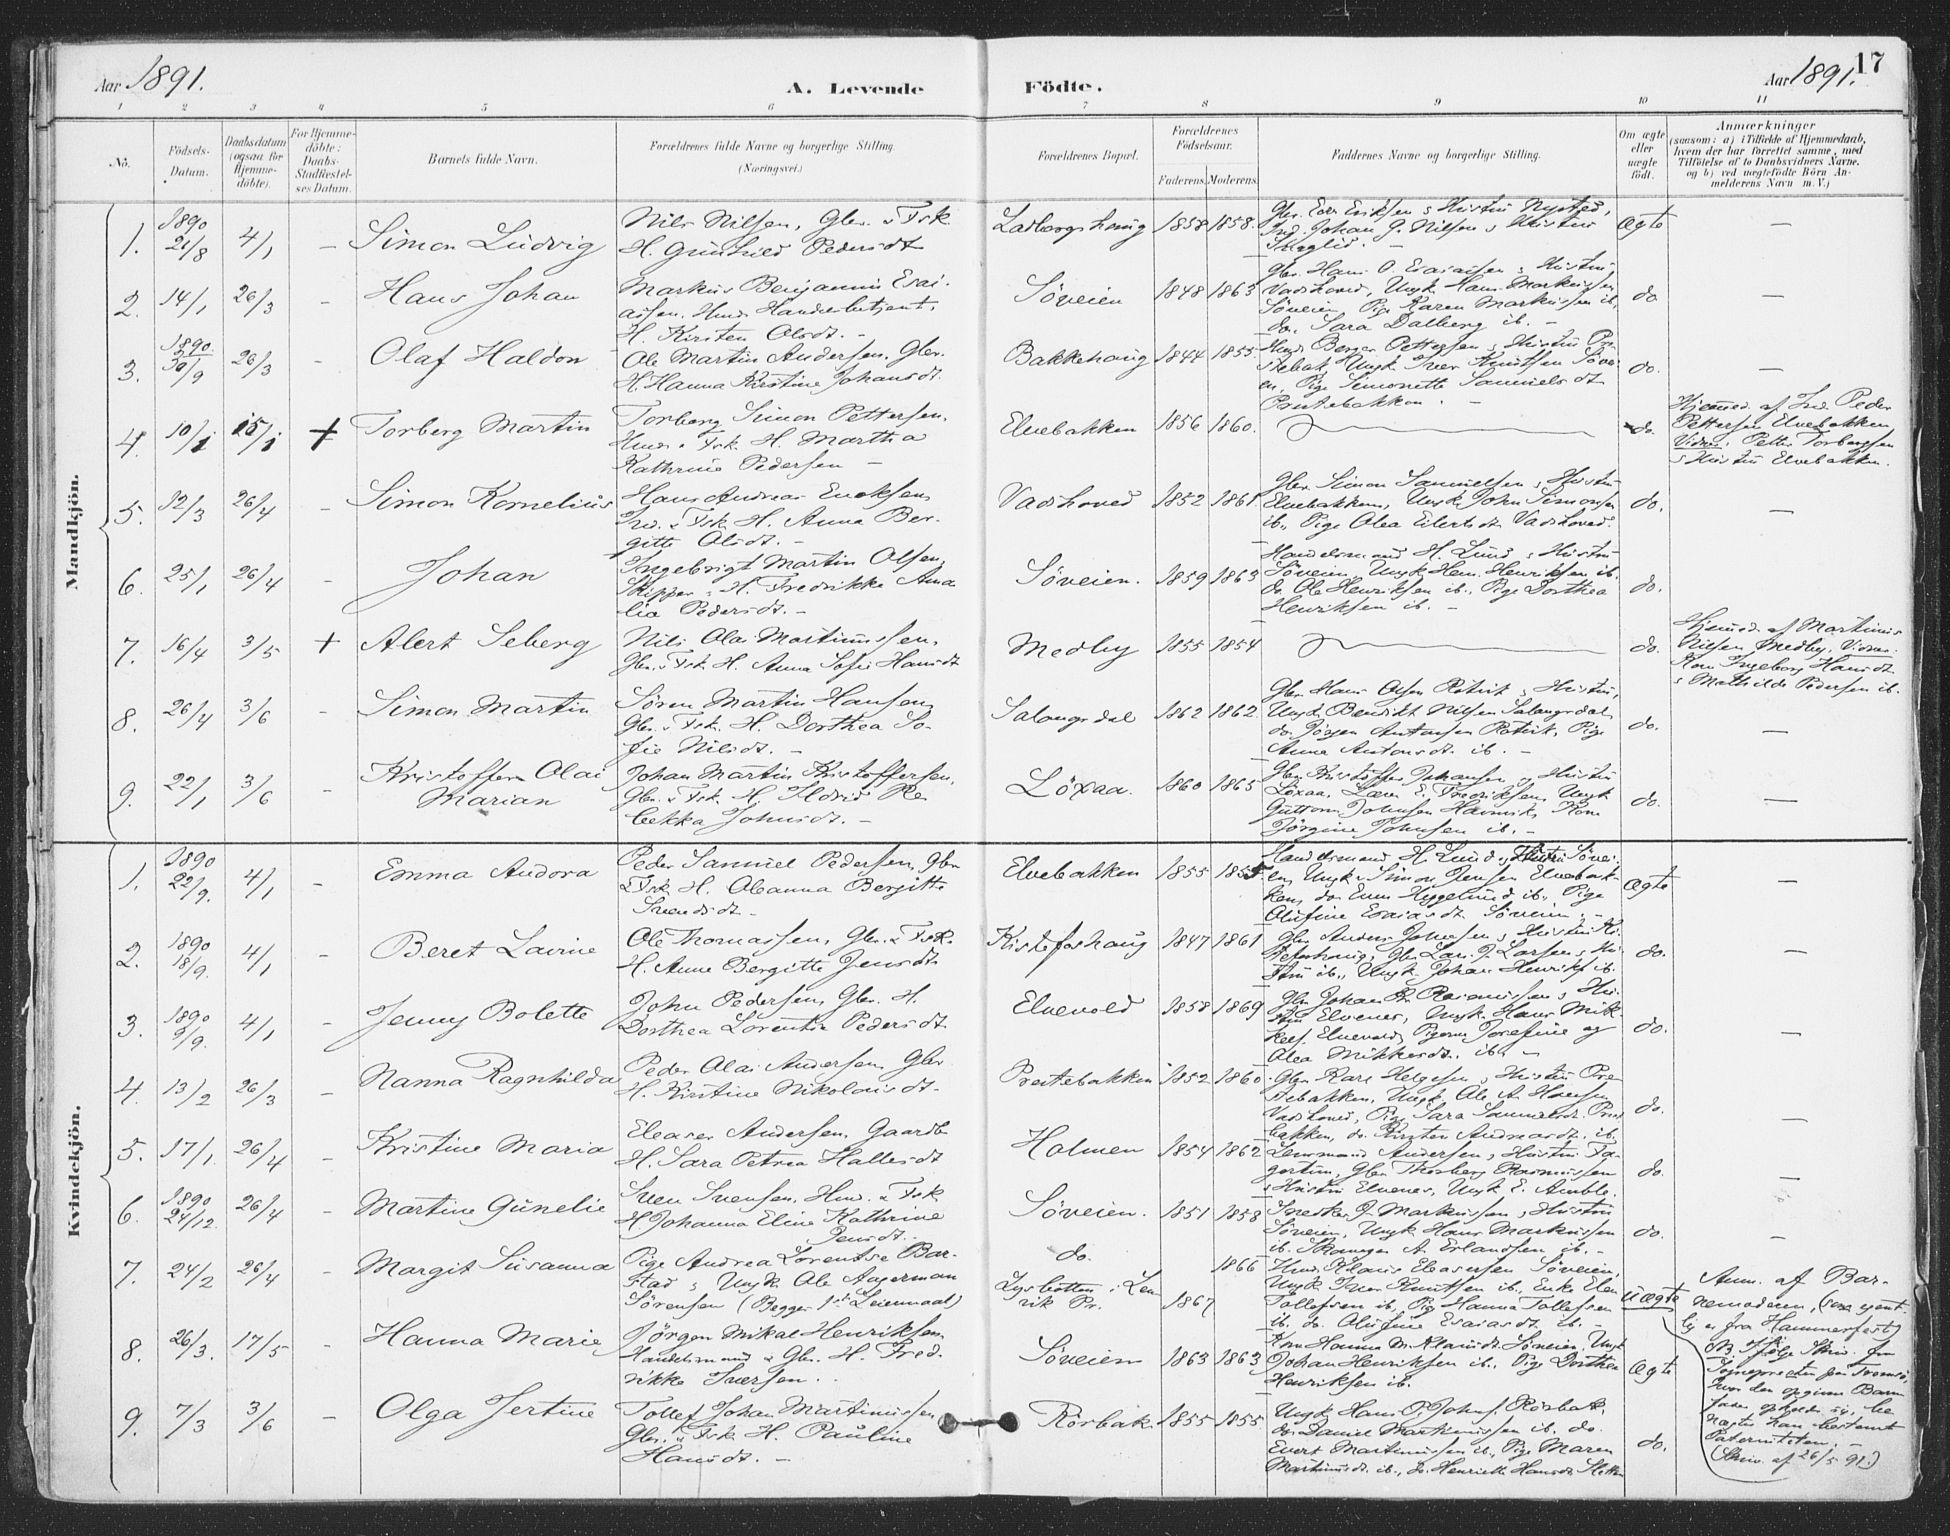 Aar 1891.
A. Levende Födte.
Aar 1891. 17
1 2 3 4 5 6 7 8 9 10 11
No.
Födsels-Datum.
Daabsdatum (ogsaa for Hjemmedöbte).
For Hjemmedöbte: Daabs-Stadfæstelses Datum.
Barnets fulde Navn.
Forældrenes fulde Navne og borgerlige Stilling. (Næringsvei.)
Forældrenes Bopæl.
Forældrenes Födselsaar.
Faderens. Moderens.
Faddernes Navne og borgerlige Stilling.
Om ægte eller uægte födt.
Anmærkninger
(saasom: a) i Tilfælde af Hjemmedaab, hvem der har forrettet samme, med Tilföielse af to Daabsvidners Navne, og b) ved uægtefödte Börn Anmelderens Navn m. V.)
Mandkjön.
1. 1890 21/8 4/1 – Simon Ludvig
Nils Nilsen, Gbr. & Fsk.
H. Gunhild Pedersdt
Ladbergshaug 1858 1858.
Ægte –
2. 14/1 26/3 – Hans Johan
Markus Benjamin Esai-
assen, Hmd. Handelsbetjent,
H. Kirsten Olsdt. –
Söveien 1848 1863
Gbr. Hans O. Esaiassen & Hustru
Vadshoved, Ungk. Hans Markussen
Söveien, Pige Karen Markussen ib.
do. Sara Dalberg ib. –
do. –
3. 1890 30/9 26/3 – Olaf Haldon
Ole Martin Andersen, Gbr.
H. Hanna Kirstine Johansdt.
Bakkehaug 1844 1855
Hmd. Berger Pettersen & Hustru Pre-
stebak, Ungk. Iver Knutsen Söve-
en, Pige Simonette Samuelsdt
Prestebakken. –
do. –
4. 10/1 15/1 + Torberg Martin
Torberg Simon Pettersen,
Hmd. & Fsk. H. Martha
Kathrine Pedersen –
Elvebakken 1856 1860.
do.
Hjemmed. af Ind. Peder
Pettersen Elvebakken
Vidner: Petter Torbergsen
& Hustru Elvebakken.
5. 12/3 26/4 – Simon Kornelius
Hans Andreas Enoksen,
Ind. & Fsk. H. Anna Ber-
gitte Olsdt. –
Vadshoved 1852 1861.
Gbr. Simon Samuelsen & Hustru
Elvebakken, Ungk. John Simonsen
ib., Pige Olea Eilertsdt Vadshoved.
do. –
6. 25/1 26/4 – Johan
Ingebrigt Martin Olsen,
Skipper & H. Fredrikke Ama-
lia Pedersdt. –
Söveien. 1859 1863
Handelsmand H. Lund & Hustru
Söveien, Ungk. Hen. Henriksen ib.
do. Ole Henriksen ib., Pige Dorthea
Henriksen ib. –
do.
7. 16/4 3/5 + Alert Seberg
Nils Olai Martinussen,
Gbr. & Fsk. H. Anna Sofie Hansdt
Medby 1855 1854
do.
Hjemmed. af Martinus
Nilsen Medby, Vidner:
Kone Ingeborg Hansdt.
& Mathilde Pedersen ib.
8. 26/4 3/6 – Simon Martin
Sören Martin Hansen,
Gbr. & Fsk. H. Dorthea So-
fie Nilsdt. –
Salangsdal 1862 1862
Gbr. Hans Olsen Rötvik & Hustru,
Ungk. Benedikt Nilsen Salangsdal,
do. Jörgen Antonsen Rötvik, Pige
Anna Antonsdt. ib. –
do. –
9. 22/1 3/6 – Kristoffer Olai
Marian
Johan Martin Kristoffersen,
Gbr. & Fsk. H. Ildrid Re-
bekka Johnsdt. –
Löxaa. 1860 1865
Gbr. Kristoffer Johansen & Hustru
Löxaa, Lærer E. Fredriksen, Ungk.
Guttorm Johnsen Havnvik, Kone
Jörgine Johnsen ib. –
do. –
Kvindekjön.
1. 1890 22/9. 4/1 – Emma Andora
Peder Samuel Pedersen, Gbr.
& Fsk. H. Oleanna Bergitte
Svendsdt. –
Elvebakken 1855 1855
Handelsmand H. Lund & Hustru Sövei-
en, Ungk. Simon Jensen Elvebak-
ken, do. Even Hyggelund ib., Pige
Olufine Esaiasdt. Söveien. –
Ægte –
2. 1890 18/9. 4/1 – Beret Lavine
Ole Thomassen, Gbr. & Fsk.
H. Anne Bergitte Jensdt.
Kistefoshaug 1847 1861
do. –
3. 1890 9/9. 4/1 – Jenny Bolette
John Pedersen, Gbr. H.
Dorthea Lorentse Pedersdt.
Elvevold 1858 1869
Gbr. Johan P. Rasmussen & Hus-
tru Elvenes, Ungk. Hans Mik-
kels. Elvevold, Pigerne Josefine og
Olea Mikkelsdt. ib. –
do. –
4. 13/2 26/3 – Nanna Ragnhilda
Peder Olai Andersen, Gbr
H. Kirstine Nikolaisdt. –
Prestebakken 1852 1860.
Gbr. Karl Helgesen & Hustru Pre-
stebakken, Ungk. Ole A. Hansen
Vadshoved, Pige Sara Samuelsdt. Pres-
bakken, do. Kirsten Andreasdt. ib.
do. –
5. 17/1. 26/4 – Kristine Maria
Eleaser Andersen, Gaardb.
H. Sara Petrea Hallesdt
Holmen 1854 1862
Lensmand Andersen & Hustru Fo-
gertun, Gbr. Thorberg Rasmussen
& Hustru Elvenes, Ungk. E. Amble.
do. –
6. 1890 24/12. 26/4 – Martine Gunelie
Sven Svensen, Hmd. & Fsk
H. Johanna Eline Kathrine
Jensdt.
Söveien. 1851 1858
Snedker J. Markussen & Hustru
Söveien, Ungk. Hans Markussen
ib. Skomager A. Erlandsen ib. –
do. –
7. 24/2 26/4 – Margit Susanna
Pige Andrea Lorentse Bar-
stad & Ungk. Ole Aagerman
Sörensen (Begges 1ste Leiermaal)
do.
Lysbotten i Len-
vik Pr. 1867 1866
Hmd. Klaus Eleasersen Söveien,
Ungk. Iver Knutsen ib., Enke Elen
Tollefsen ib., Pige Hanna Tollefsen
ib. do. Olufine Esaiasdt. ib. –
Uægte
Anm. af Bar-
nemoderen, (som egent-
lig er fra Hammerfest)
NB. Ifölge Skriv. fra
Sognepresten for Tromsö,
hvor den opgivne Barne-
fader opholdt sig, be-
nægter han bestemt
Paterniteten. –
(Skriv. af 26/5 91.)
8. 26/3. 17/5 – Hanna Marie
Jörgen Mikal Henriksen,
Handelsmand & Gbr. H. Fred-
rikke Iversen.
Söveien 1863 1863
Kone Hanna M. Klausdt Söveien, Ungk
Johan Henriksen ib., Pige Dorthea
Henriksen ib.
Ægte
9. 7/3 3/6 – Olga Jertine
Tollef Johan Martinussen,
Gbr. & Fsk. H. Pauline
Hansdt. –
Rörbak 1855 1855
Ungk. Hans P. Johns. Rörbak,
do. Daniel Markussen ib., do.
Evert Martinussen ib., Pige Maren
Martinusdt. ib., do. Henrikke Hansdt
do.